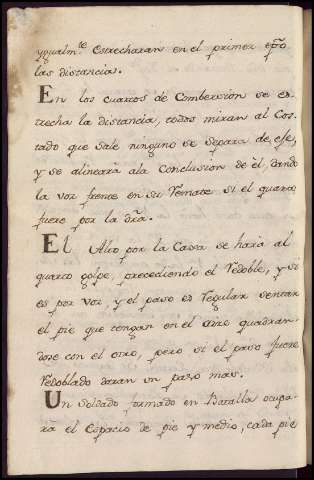 ygualm.te Estrecharan en el primer
las distancia.
En los cuartos de Combersion se es-
trecha la distancia, todos miran al Cos-
tado que sale ninguno se separa de, ese,
y se alineara ala Conclusion de él, dando
la voz frente en su Remate si el quarto
fuere por la dra.
El Alto por la Caxa se haria al
quarto golpe, precediendo el Redoble, y si
es por voz, y el paso es Regular sentar
el pie que tengan en el Aire quadran-
dose con el otro, pero si el paso fuere
Redoblado daran un pazo mas.
Un Soldado formado en Batalla ocupa-
rá el Espacio de pie y medio, cada pie